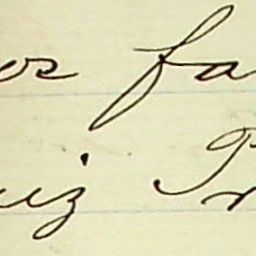 os fa
uiz Pr